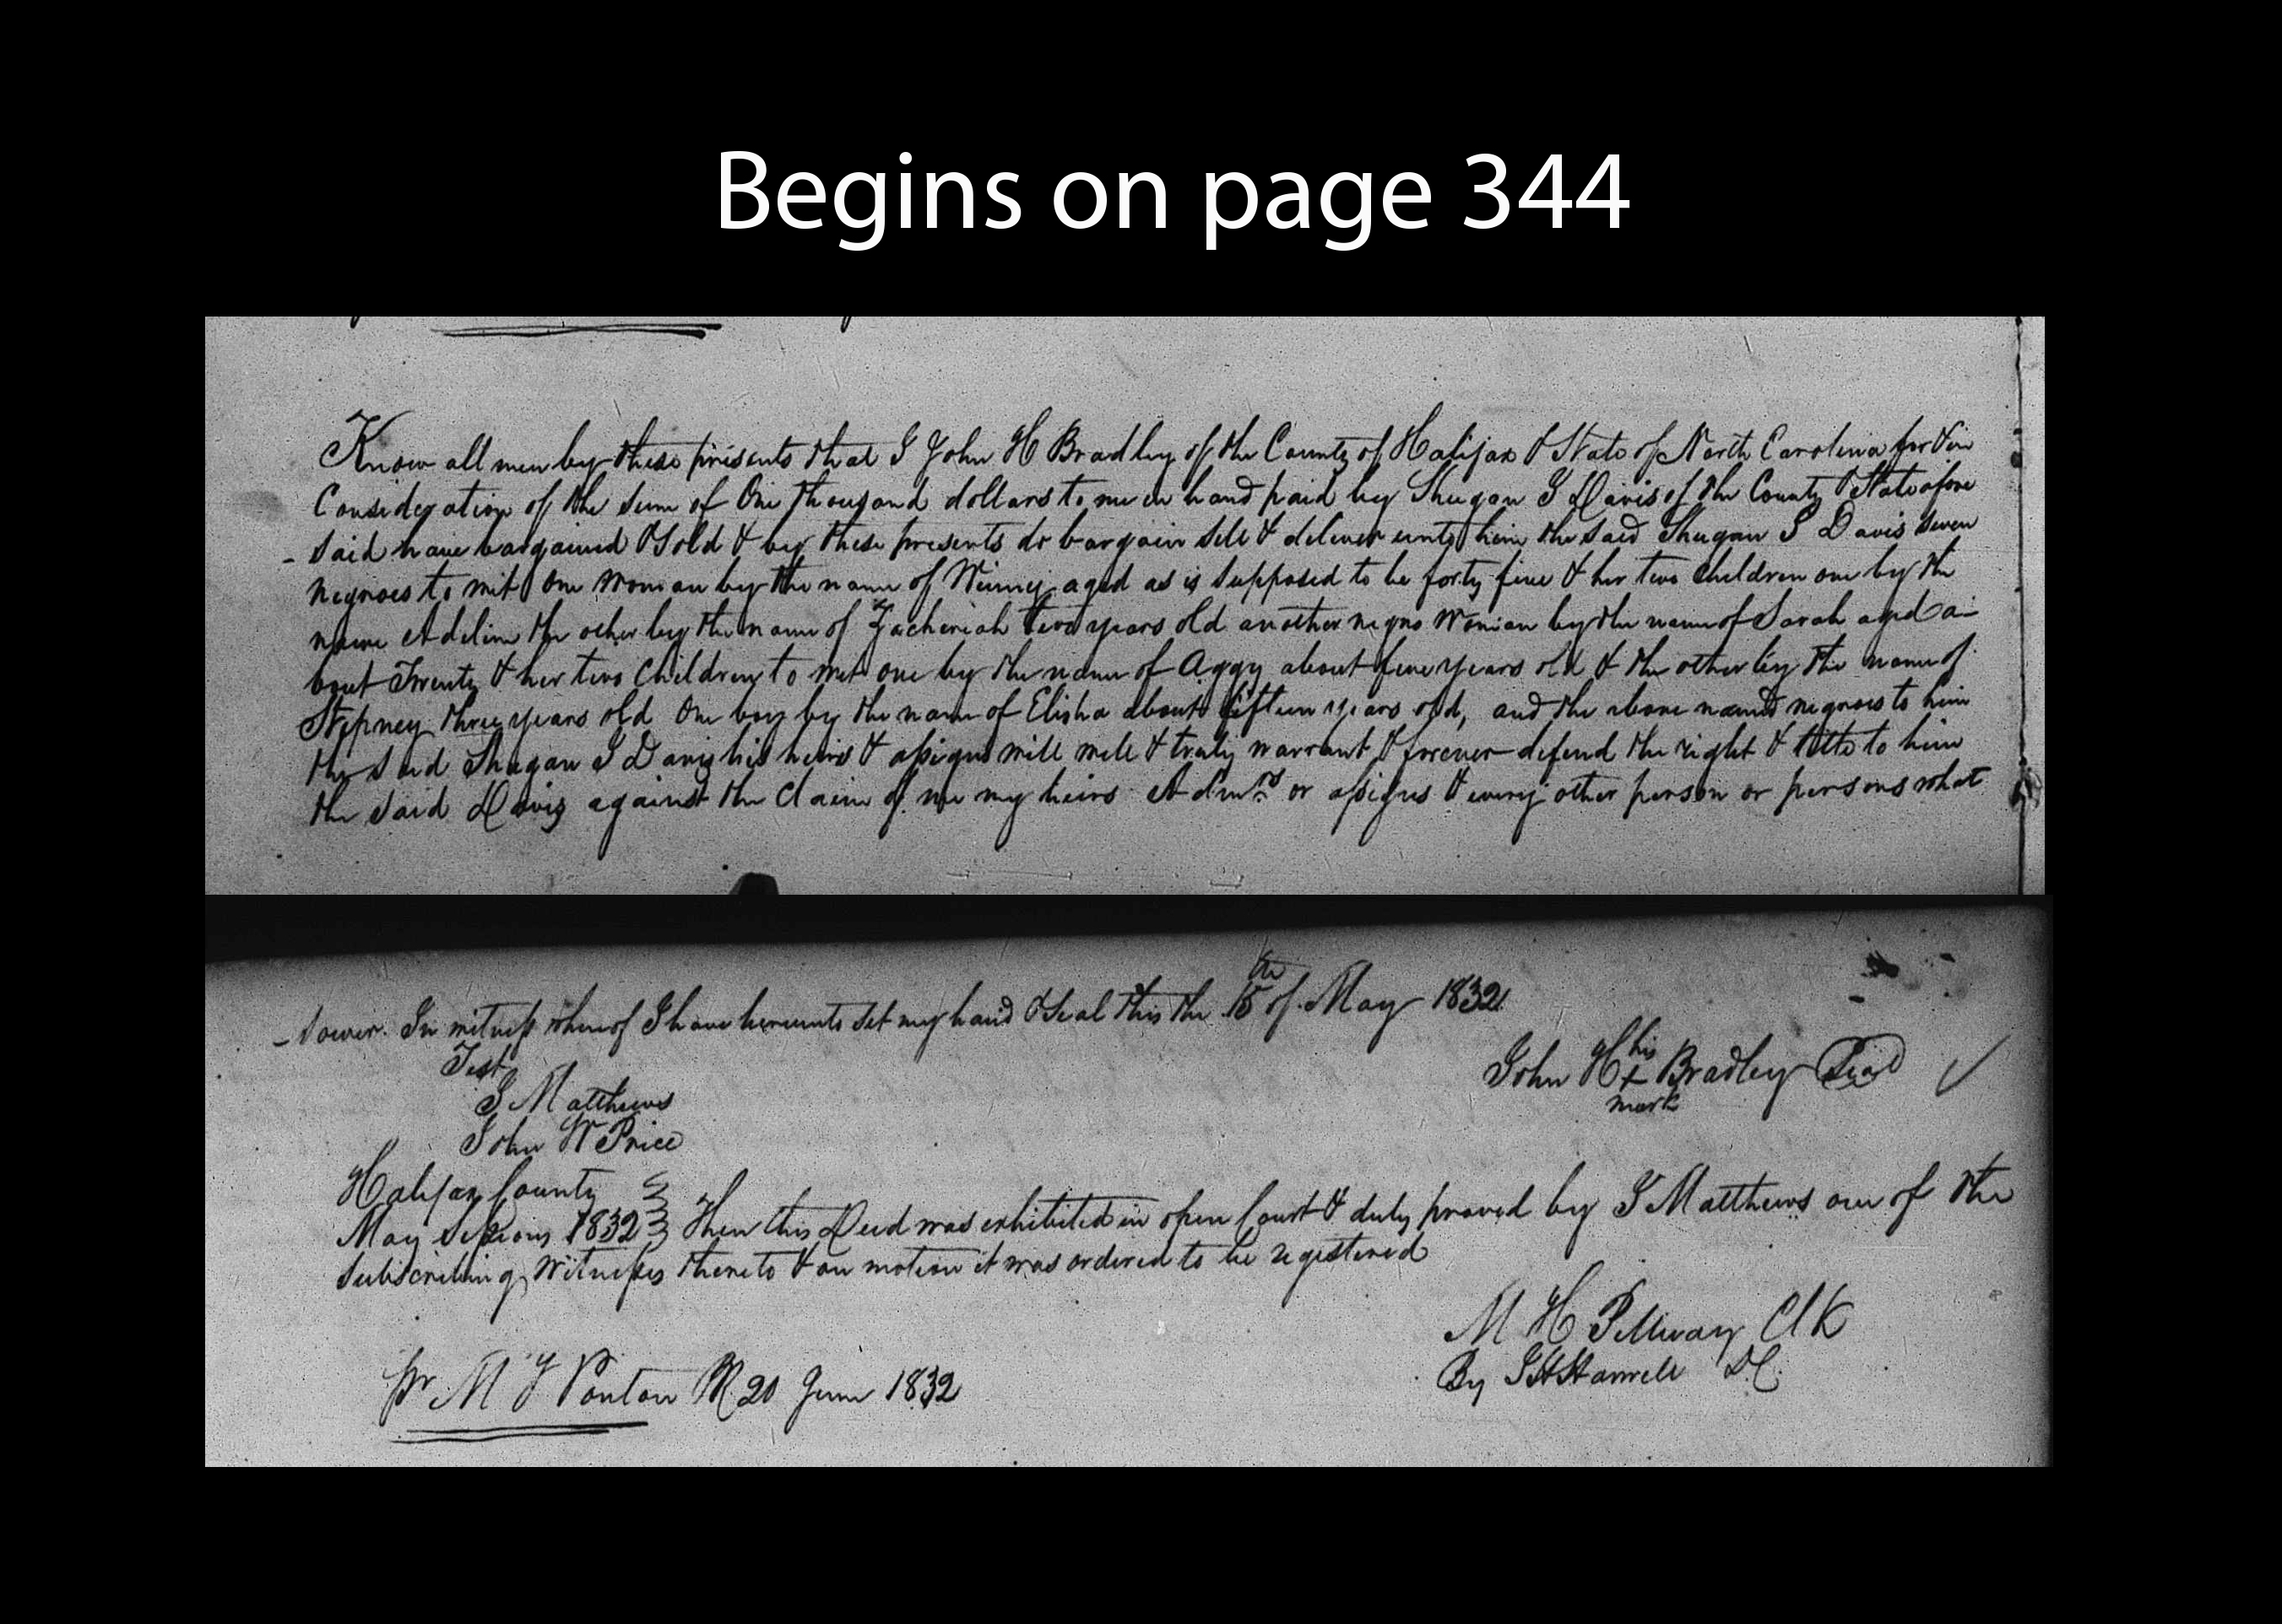 Begins on page 344
Know all men by these presents that I John H Bradley of the County of Halifax & State of North Carolina for & in
Consideration of the sum of One thousand dollars to me in hand paid by Shugan S Davis of the County & State afore
- said have bargained & sold & by these presents do bargain sell & deliver unto him the said Shugan S Davis seven
negroes to wit One Woman by the name of Winny aged as is supposed to be forty five & her two children one by the
name Adeline the other by the name of Zacheriah two years old another negro Woman by the name of Sarah aged a-
bout Twenty & her two Children to wit one by the name of Aggy about five years old & the other by the name of
Stepney three years old One boy by the name of Elisha about fifteen years old, and the above named negroes to him
the said Shugan S Davis his heirs & assigns will well & truly warrant & forever defend the right & title to him
the said Davis against the Claim of me my heirs Admrs or assigns & every other person or persons what
- soever. In witness whereof I have hereunto set my hand & Seal this the 15th of May 1832
Test
John H his + mark Bradley Seal
S Matthews
John W Price
Halifax County
May Sessions 1832 Then this Deed was exhibited in open Court & duly proved by S Matthews one of the
Subscribing Witnesses thereto & on motion it was ordered to be registered
M H Pettway Clk
By D.C.
pr M J Ponton PR 20 June 1832